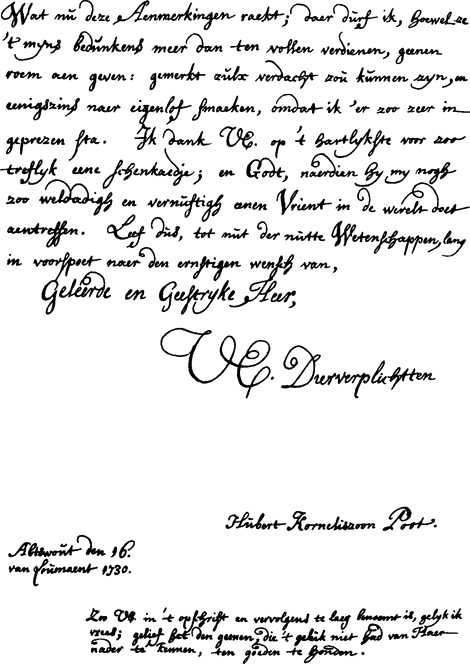 Wat nŭ deze Aenmerkingen raekt; daer dŭrf ik, hoewel ze
't myns bedŭnkens meer dan ten vollen verdienen, geenen
roem aen geven: gemerkt zulx verdacht zoŭ kŭnnen zyn, en
eenigszins naer eigenlof smaeken, omdat ik 'er zoo zeer in
geprezen sta. Ik dank UE. op 't hartlykste voor zoo
treflyk eene schenkaedje; en Godt, naerdien hy my nogh
zoo weldadigh en vernŭftigh eenen Vrient in de werelt doet
aentreffen. Leef dŭs, tot nŭt der nŭtte Wetenschappen, lang
in voorspoet naer den ernstigen wensch van,
Geleerde en Geestryke Heer,
UE. Dierverplichtten
Hŭbert Korneliszoon Poot.
Abtswoŭt den 16.
van Loumaent 1730.
Zoo UE in 't opschrift en vervolgens te laeg benoemt is, gelyk ik
vrees; gelief het den geenen, die 't gelŭk niet had van Haer
nader te kennen, ten goeden te hoŭden.